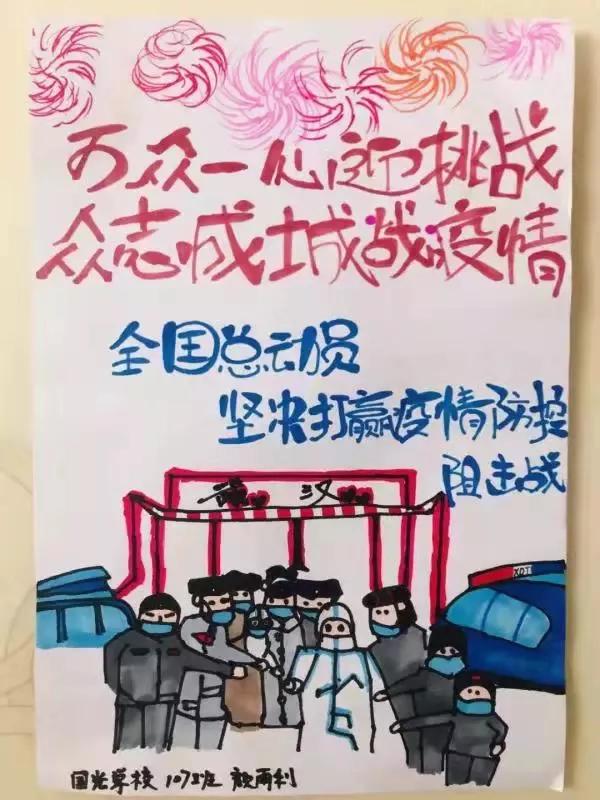 万众一心迎挑战
众志成城战疫情
全国总动员
坚决打赢疫情防控
阻击战
武汉
国光 107班